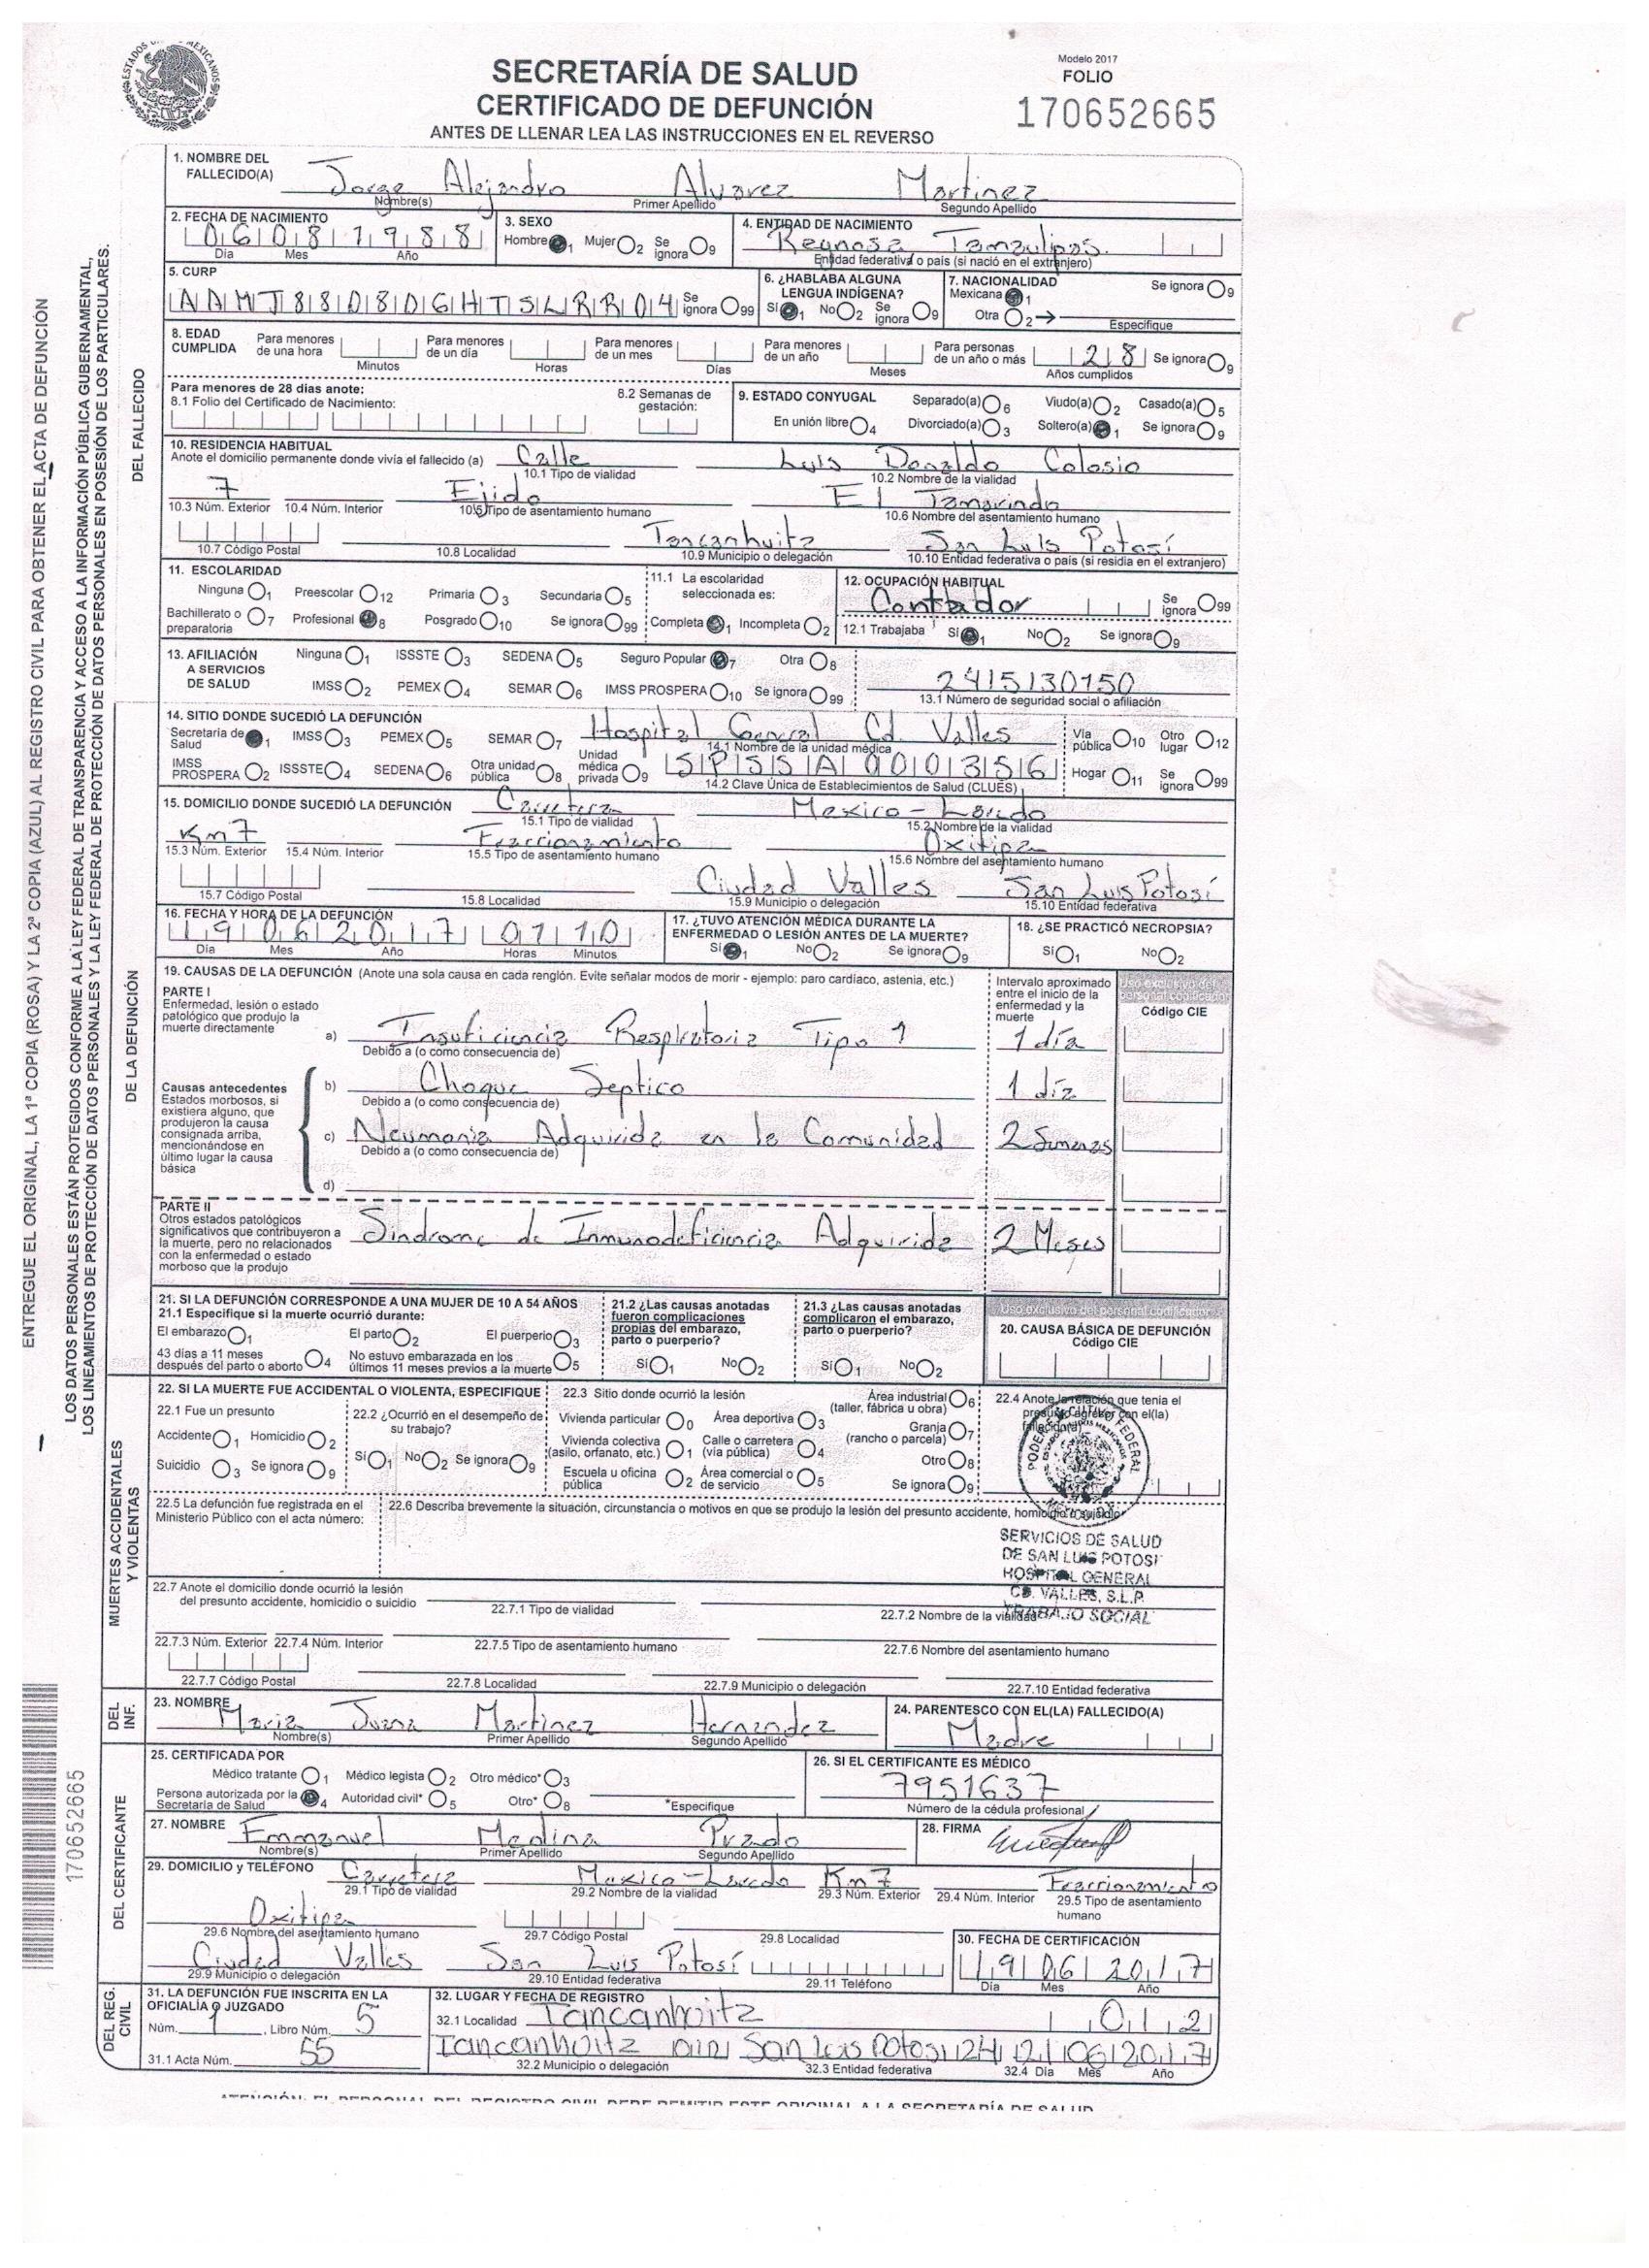 ESTADOS UNIDOS MEXICANOS
SECRETARÍA DE SALUD
CERTIFICADO DE DEFUNCIÓN
ANTES DE LLENAR LEA LAS INSTRUCCIONES EN EL REVERSO
Modelo 2017
FOLIO
170652665
ENTREGUE EL ORIGINAL, LA 1ª COPIA (ROSA) Y LA 2ª COPIA (AZUL) AL REGISTRO CIVIL PARA OBTENER EL ACTA DE DEFUNCIÓN
LOS DATOS PERSONALES ESTÁN PROTEGIDOS CONFORME A LA LEY FEDERAL DE TRANSPARENCIA Y ACCESO A LA INFORMACIÓN PÚBLICA GUBERNAMENTAL,
LOS LINEAMIENTOS DE PROTECCIÓN DE DATOS PERSONALES Y LA LEY FEDERAL DE PROTECCIÓN DE DATOS PERSONALES EN POSESIÓN DE LOS PARTICULARES.
DEL FALLECIDO
1. NOMBRE DEL FALLECIDO(A) Jorge Alejandro Alvarez Martinez
Nombre(s) Primer Apellido Segundo Apellido
2. FECHA DE NACIMIENTO 06 08 1988
Día Mes Año
3. SEXO
Hombre 1 Mujer 2 Se ignora 9
4. ENTIDAD DE NACIMIENTO
Reynosa Tamaulipas.
Entidad federativa o país (si nació en el extranjero)
5. CURP
Se ignora 99
6. ¿HABLABA ALGUNA LENGUA INDÍGENA?
Sí 1 No 2 Se ignora 9
7. NACIONALIDAD Se ignora 9
Mexicana 1
Otra 2 Especifique
8. EDAD CUMPLIDA
Para menores de una hora Minutos
Para menores de un día Horas
Para menores de un mes Días
Para menores de un año Meses
Para personas de un año o más 28 Años cumplidos Se ignora 9
Para menores de 28 días anote:
8.1 Folio del Certificado de Nacimiento:
8.2 Semanas de gestación:
9. ESTADO CONYUGAL Separado(a) 6 Viudo(a) 2 Casado(a) 5
En unión libre 4 Divorciado(a) 3 Soltero(a) 1 Se ignora 9
10. RESIDENCIA HABITUAL
Anote el domicilio permanente donde vivía el fallecido (a) Calle Luis Donaldo Colosio
10.1 Tipo de vialidad 10.2 Nombre de la vialidad
7 Ejido El Tamarindo
10.3 Núm. Exterior 10.4 Núm. Interior 10.5 Tipo de asentamiento humano 10.6 Nombre del asentamiento humano
Tancanhuitz San Luis Potosí
10.7 Código Postal 10.8 Localidad 10.9 Municipio o delegación 10.10 Entidad federativa o país (si residía en el extranjero)
11. ESCOLARIDAD
Ninguna 1 Preescolar 12 Primaria 3 Secundaria 5
Bachillerato o preparatoria 7 Profesional 8 Posgrado 10 Se ignora 99
11.1 La escolaridad seleccionada es:
Completa 1 Incompleta 2
12. OCUPACIÓN HABITUAL
Contador Se ignora 99
12.1 Trabajaba Sí 1 No 2 Se ignora 9
13. AFILIACIÓN A SERVICIOS DE SALUD
Ninguna 1 ISSSTE 3 SEDENA 5 Seguro Popular 7 Otra 8
IMSS 2 PEMEX 4 SEMAR 6 IMSS PROSPERA 10 Se ignora 99
2415130150
13.1 Número de seguridad social o afiliación
DE LA DEFUNCIÓN
14. SITIO DONDE SUCEDIÓ LA DEFUNCIÓN Hospital General Cd. Valles
Secretaría de Salud 1 IMSS 3 PEMEX 5 SEMAR 7 14.1 Nombre de la unidad médica Vía pública 10 Otro lugar 12
IMSS PROSPERA 2 ISSSTE 4 SEDENA 6 Otra unidad pública 8 Unidad médica privada 9 SPSSA000356 Hogar 11 Se ignora 99
14.2 Clave Única de Establecimientos de Salud (CLUES)
15. DOMICILIO DONDE SUCEDIÓ LA DEFUNCIÓN Carretera Mexico - Laredo
15.1 Tipo de vialidad 15.2 Nombre de la vialidad
Km 7 Fraccionamiento Oxitipa
15.3 Núm. Exterior 15.4 Núm. Interior 15.5 Tipo de asentamiento humano 15.6 Nombre del asentamiento humano
Ciudad Valles San Luis Potosí
15.7 Código Postal 15.8 Localidad 15.9 Municipio o delegación 15.10 Entidad federativa
16. FECHA Y HORA DE LA DEFUNCIÓN
19 06 2017 01 10
Día Mes Año Horas Minutos
17. ¿TUVO ATENCIÓN MÉDICA DURANTE LA ENFERMEDAD O LESIÓN ANTES DE LA MUERTE?
Sí 1 No 2 Se ignora 9
18. ¿SE PRACTICÓ NECROPSIA?
Sí 1 No 2
19. CAUSAS DE LA DEFUNCIÓN (Anote una sola causa en cada renglón. Evite señalar modos de morir - ejemplo: paro cardíaco, astenia, etc.)
Intervalo aproximado entre el inicio de la enfermedad y la muerte
Uso exclusivo del personal codificador
Código CIE
PARTE I
Enfermedad, lesión o estado patológico que produjo la muerte directamente
a) Insuficiencia Respiratoria Tipo 1 1 día
Debido a (o como consecuencia de)
Causas antecedentes
Estados morbosos, si existiera alguno, que produjeron la causa consignada arriba, mencionándose en último lugar la causa básica
b) Choque Septico 1 día
Debido a (o como consecuencia de)
c) Neumonia Adquirida en la Comunidad 2 Semanas
Debido a (o como consecuencia de)
d)
PARTE II
Otros estados patológicos significativos que contribuyeron a la muerte, pero no relacionados con la enfermedad o estado morboso que la produjo
Sindrome de Inmunodeficiencia Adquirida 2 Meses
21. SI LA DEFUNCIÓN CORRESPONDE A UNA MUJER DE 10 A 54 AÑOS
21.1 Especifique si la muerte ocurrió durante:
El embarazo 1 El parto 2 El puerperio 3
43 días a 11 meses después del parto o aborto 4 No estuvo embarazada en los últimos 11 meses previos a la muerte 5
21.2 ¿Las causas anotadas fueron complicaciones propias del embarazo, parto o puerperio?
Sí 1 No 2
21.3 ¿Las causas anotadas complicaron el embarazo, parto o puerperio?
Sí 1 No 2
Uso exclusivo del personal codificador
20. CAUSA BÁSICA DE DEFUNCIÓN
Código CIE
MUERTES ACCIDENTALES Y VIOLENTAS
22. SI LA MUERTE FUE ACCIDENTAL O VIOLENTA, ESPECIFIQUE
22.1 Fue un presunto
Accidente 1 Homicidio 2
Suicidio 3 Se ignora 9
22.2 ¿Ocurrió en el desempeño de su trabajo?
Sí 1 No 2 Se ignora 9
22.3 Sitio donde ocurrió la lesión
Vivienda particular 0 Área deportiva 3 Área industrial (taller, fábrica u obra) 6
Vivienda colectiva (asilo, orfanato, etc.) 1 Calle o carretera (vía pública) 4 Granja (rancho o parcela) 7
Escuela u oficina pública 2 Área comercial o de servicio 5 Otro 8
Se ignora 9
22.4 Anote la relación que tenía el presunto agresor con el(la) fallecido(a)
PODER EJECUTIVO FEDERAL
22.5 La defunción fue registrada en el Ministerio Público con el acta número:
22.6 Describa brevemente la situación, circunstancia o motivos en que se produjo la lesión del presunto accidente, homicidio o suicidio
SERVICIOS DE SALUD
DE SAN LUIS POTOSI
HOSPITAL GENERAL
CD. VALLES, S.L.P.
TRABAJO SOCIAL
22.7 Anote el domicilio donde ocurrió la lesión del presunto accidente, homicidio o suicidio
22.7.1 Tipo de vialidad 22.7.2 Nombre de la vialidad
22.7.3 Núm. Exterior 22.7.4 Núm. Interior 22.7.5 Tipo de asentamiento humano 22.7.6 Nombre del asentamiento humano
22.7.7 Código Postal 22.7.8 Localidad 22.7.9 Municipio o delegación 22.7.10 Entidad federativa
DEL INF.
23. NOMBRE Maria Juana Martinez Hernandez
Nombre(s) Primer Apellido Segundo Apellido
24. PARENTESCO CON EL(LA) FALLECIDO(A)
Madre
DEL CERTIFICANTE
25. CERTIFICADA POR
Médico tratante 1 Médico legista 2 Otro médico* 3
Persona autorizada por la Secretaría de Salud 4 Autoridad civil* 5 Otro* 8 *Especifique
26. SI EL CERTIFICANTE ES MÉDICO
7951637
Número de la cédula profesional
27. NOMBRE Emmanuel Medina Prado
Nombre(s) Primer Apellido Segundo Apellido
28. FIRMA
29. DOMICILIO y TELÉFONO Carretera Mexico - Laredo Km 7 Fraccionamiento
29.1 Tipo de vialidad 29.2 Nombre de la vialidad 29.3 Núm. Exterior 29.4 Núm. Interior 29.5 Tipo de asentamiento humano
Oxitipa
29.6 Nombre del asentamiento humano 29.7 Código Postal 29.8 Localidad
Ciudad Valles San Luis Potosí
29.9 Municipio o delegación 29.10 Entidad federativa 29.11 Teléfono
30. FECHA DE CERTIFICACIÓN
19 06 2017
Día Mes Año
DEL REG. CIVIL
31. LA DEFUNCIÓN FUE INSCRITA EN LA OFICIALÍA O JUZGADO
Núm. 1, Libro Núm. 5
31.1 Acta Núm. 55
32. LUGAR Y FECHA DE REGISTRO
32.1 Localidad Tancanhuitz 012
Tancanhuitz 012 San Luis Potosi 24 21 06 2017
32.2 Municipio o delegación 32.3 Entidad federativa 32.4 Día Mes Año
170652665
ATENCIÓN: EL PERSONAL DEL REGISTRO CIVIL DEBE REMITIR ESTE ORIGINAL A LA SECRETARÍA DE SALUD